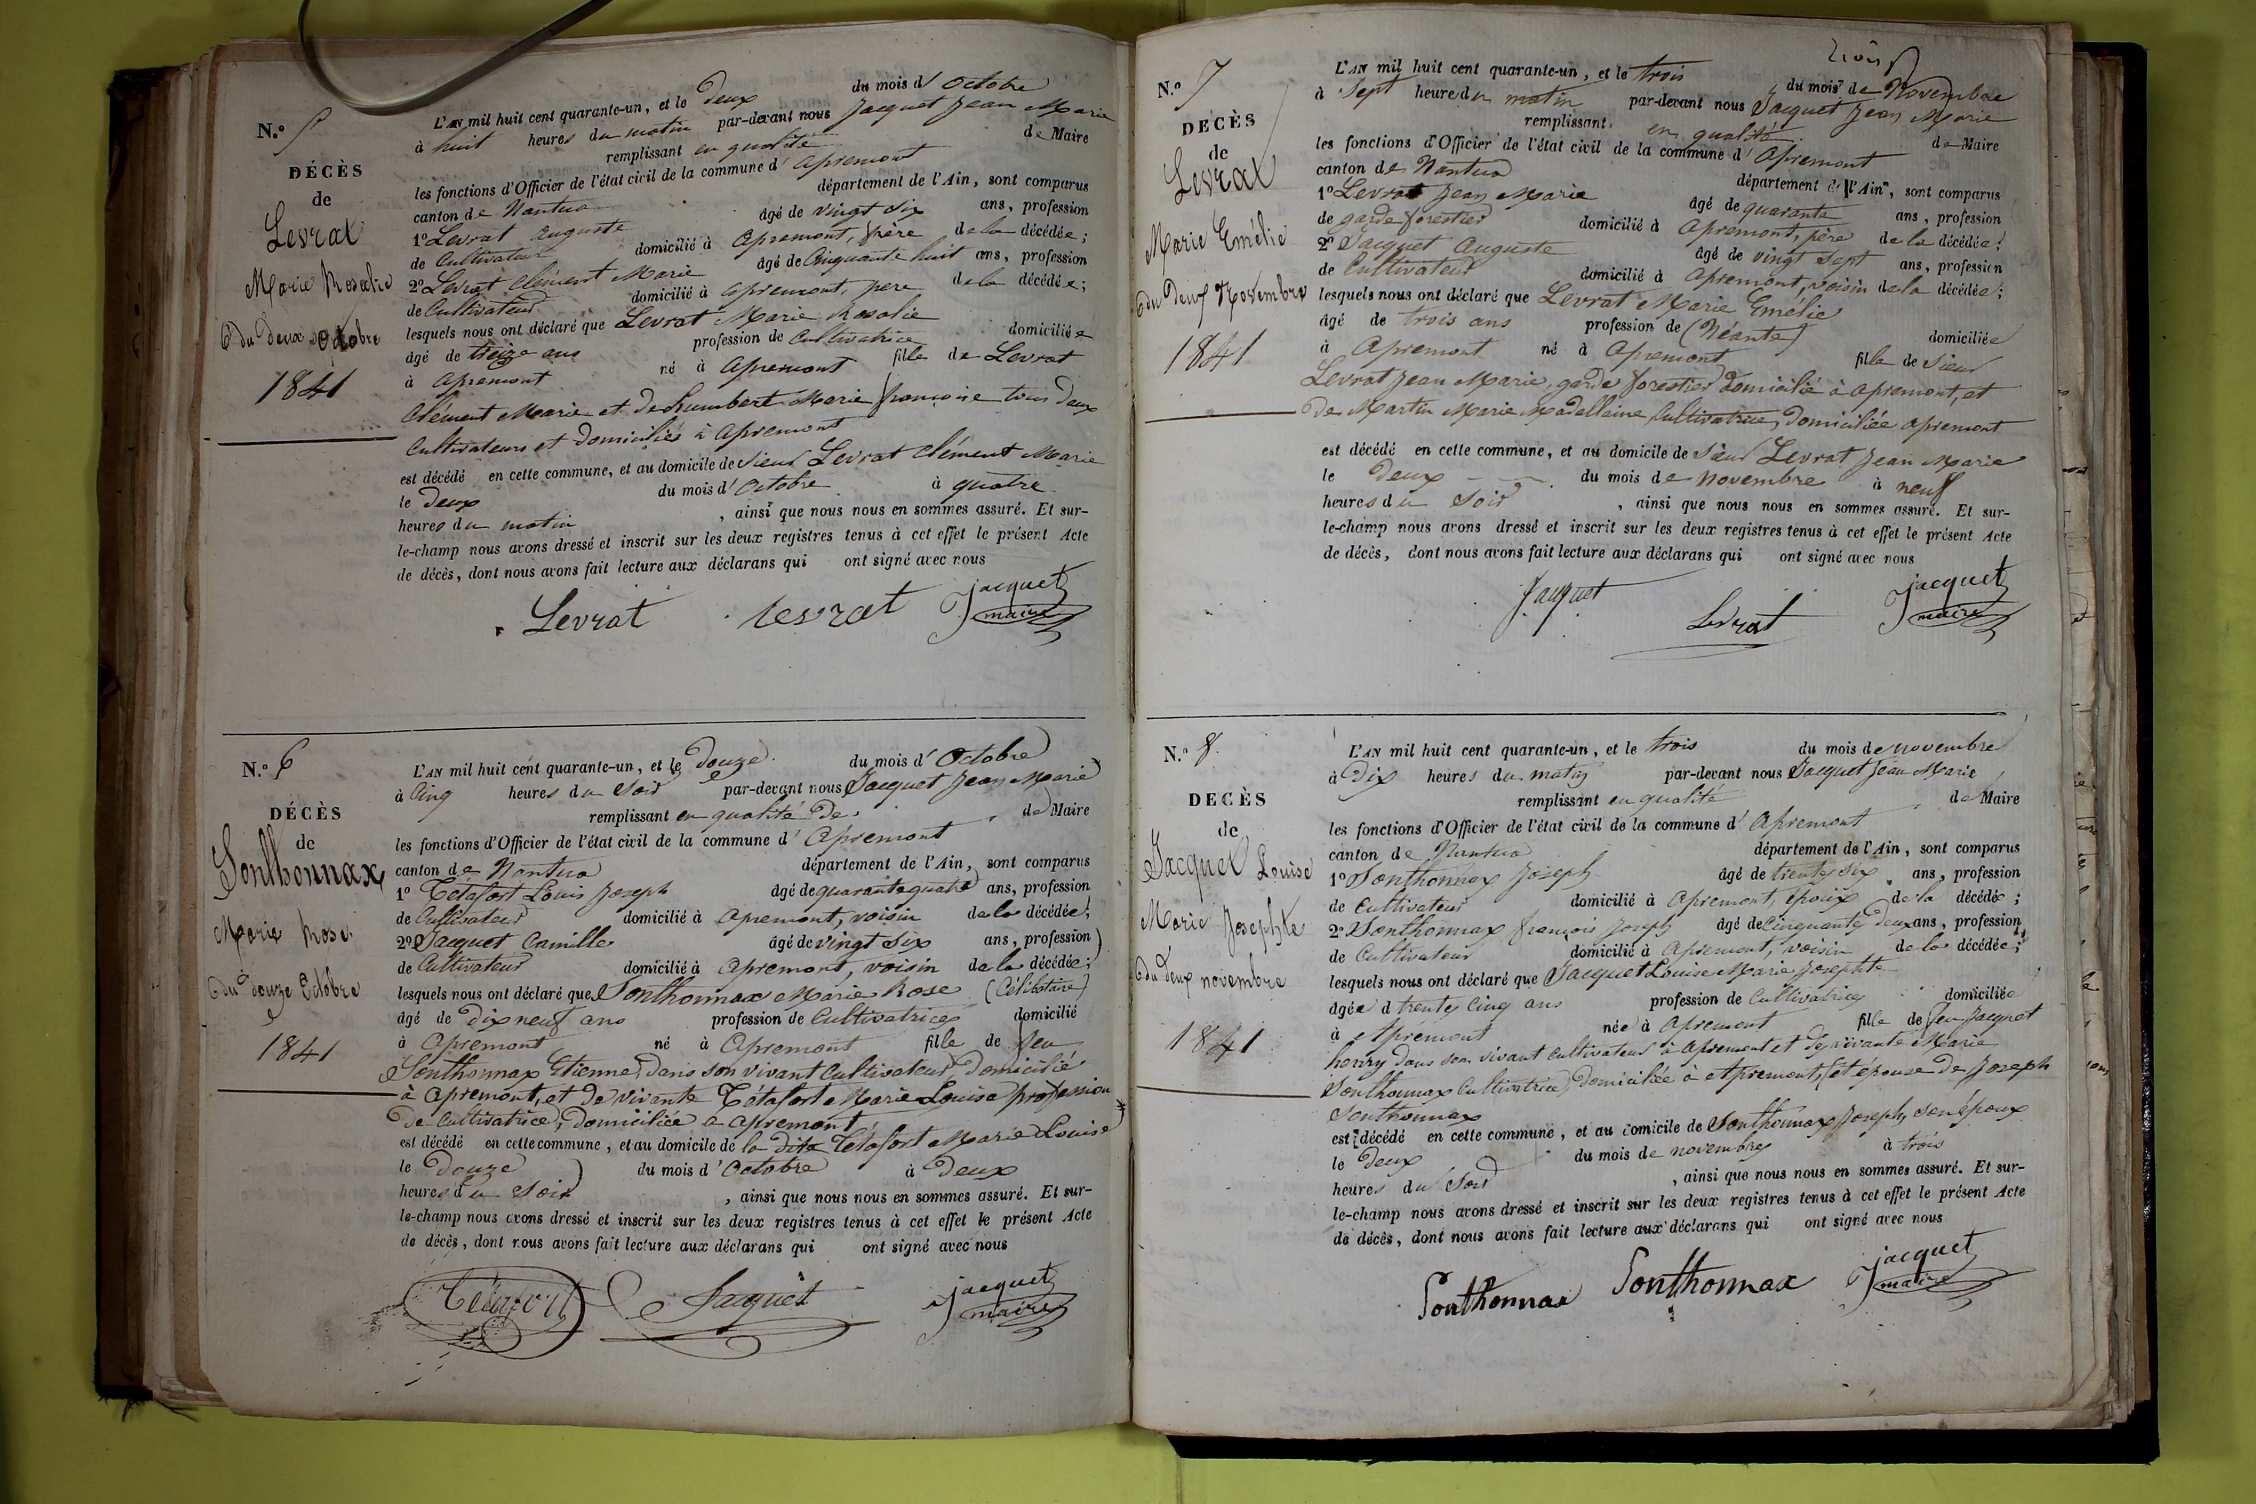 N.o 5
DÉCÈS
de
Levrat
Marie Rosalie
du deux Octobre
1841
L'AN mil huit cent quarante-un, et le deux du mois d'Octobre
à huit heures du matin par-devant nous Jacquet Jean Marie
remplissant en qualité de Maire
les fonctions d'Officier de l'état civil de la commune d'Apremont
canton de Nantua département de l'Ain, sont comparus
1o Levrat Auguste âgé de vingt six ans, profession
de Cultivateur domicilié à Apremont, frère de la décédée;
2o Levrat Clément Marie âgé de Cinquante huit ans, profession
de Cultivateur domicilié à Apremont, père de la décédée;
lesquels nous ont déclaré que Levrat Marie Rosalie
âgé de treize ans profession de Cultivatrice domiciliée
à Apremont né à Apremont fille de Levrat
Clément Marie et de humbert Marie françoise tous deux
Cultivateurs et domiciliés à Apremont
est décédé en cette commune, et au domicile de sieur Levrat Clément Marie
le deux du mois d'Octobre à quatre
heures du matin, ainsi que nous nous en sommes assuré. Et sur-
le-champ nous avons dressé et inscrit sur les deux registres tenus à cet effet le présent Acte
de décès, dont nous avons fait lecture aux déclarans qui ont signé avec nous
Levrat Levrat Jacquet
maire
N.o 6
DÉCÈS
de
Sonthonnax
Marie Rose
du douze Octobre
1841
L'AN mil huit cent quarante-un, et le douze du mois d'Octobre
à Cinq heures du Soir par-devant nous Jacquet Jean Marie
remplissant en qualité de de Maire
les fonctions d'Officier de l'état civil de la commune d'Apremont
canton de Nantua département de l'Ain, sont comparus
1o Tétafort Louis Joseph âgé de quarante quatre ans, profession
de Cultivateur domicilié à Apremont, voisin de la décédée;
2o Jacquet Camille âgé de vingt six ans, profession
de Cultivateur domicilié à Apremont, voisin de la décédée;
lesquels nous ont déclaré que Sonthonnax Marie Rose (Célibataire)
âgé de dix neuf ans profession de Cultivatrice domicilié
à Apremont né à Apremont fille de feu
Sonthonnax Etienne, dans son vivant Cultivateur, domicilié
à Apremont, et de vivante Tétafort Marie Louise profession
de Cultivatrice, domiciliée à Apremont
est décédé en cette commune, et au domicile de la dite Tétafort Marie Louise
le douze du mois d'Octobre à deux
heures du Soir, ainsi que nous nous en sommes assuré. Et sur-
le-champ nous avons dressé et inscrit sur les deux registres tenus à cet effet le présent Acte
de décès, dont nous avons fait lecture aux déclarans qui ont signé avec nous
Tétafort Jacquet Jacquet
maire
trois
N.o 7
DÉCÈS
de
Levrat
Marie Emélie
du Deux Novembre
1841
L'AN mil huit cent quarante-un, et le trois du mois de Novembre
à Sept heures du matin par-devant nous Jacquet Jean Marie
remplissant en qualité de Maire
les fonctions d'Officier de l'état civil de la commune d'Apremont
canton de Nantua département de l'Ain, sont comparus
1o Levrat Jean Marie âgé de quarante ans, profession
de garde forestier domicilié à Apremont, père de la décédée;
2o Jacquet Auguste âgé de vingt sept ans, profession
de Cultivateur domicilié à Apremont, voisin de la décédée;
lesquels nous ont déclaré que Levrat Marie Emélie
âgé de trois ans profession de (Néante) domiciliée
à Apremont né à Apremont fille de Sieur
Levrat Jean Marie, garde forestier domicilié à Apremont, et
de Martin Marie Madellaine Cultivatrice, domiciliée apremont
est décédé en cette commune, et au domicile de Sieur Levrat Jean Marie
le deux du mois de novembre à neuf
heures du Soir, ainsi que nous nous en sommes assuré. Et sur-
le-champ nous avons dressé et inscrit sur les deux registres tenus à cet effet le présent Acte
de décès, dont nous avons fait lecture aux déclarans qui ont signé avec nous
Jacquet Levrat Jacquet
maire
N.o 8
DÉCÈS
de
Jacquet Louise
Marie Josephte
du deux novembre
1841
L'AN mil huit cent quarante-un, et le trois du mois de novembre
à Dix heures du matin par-devant nous Jacquet Jean Marie
remplissant en qualité de Maire
les fonctions d'Officier de l'état civil de la commune d'Apremont
canton de Nantua département de l'Ain, sont comparus
1o Sonthonnax Joseph âgé de trente six ans, profession
de Cultivateur domicilié à Apremont, époux de la décédée;
2o Sonthonnax françois Joseph âgé de cinquante deux ans, profession
de Cultivateur domicilié à Apremont, voisin de la décédée;
lesquels nous ont déclaré que Jacquet Louise Marie Josephte
âgée d trente Cinq ans profession de Cultivatrice domiciliée
à Apremont née à Apremont fille de feu Jacquet
henry dans son vivant Cultivateur à Apremont et de vivante Marie
Sonthonnax Cultivatrice, domiciliée à Apremont, et épouse de Joseph
Sonthonnax
est décédé en cette commune, et au domicile de Sonthonnax Joseph, son époux
le deux du mois de novembre à trois
heures du Soir, ainsi que nous nous en sommes assuré. Et sur-
le-champ nous avons dressé et inscrit sur les deux registres tenus à cet effet le présent Acte
de décès, dont nous avons fait lecture aux déclarans qui ont signé avec nous
Sonthonnax Sonthonnax Jacquet
maire